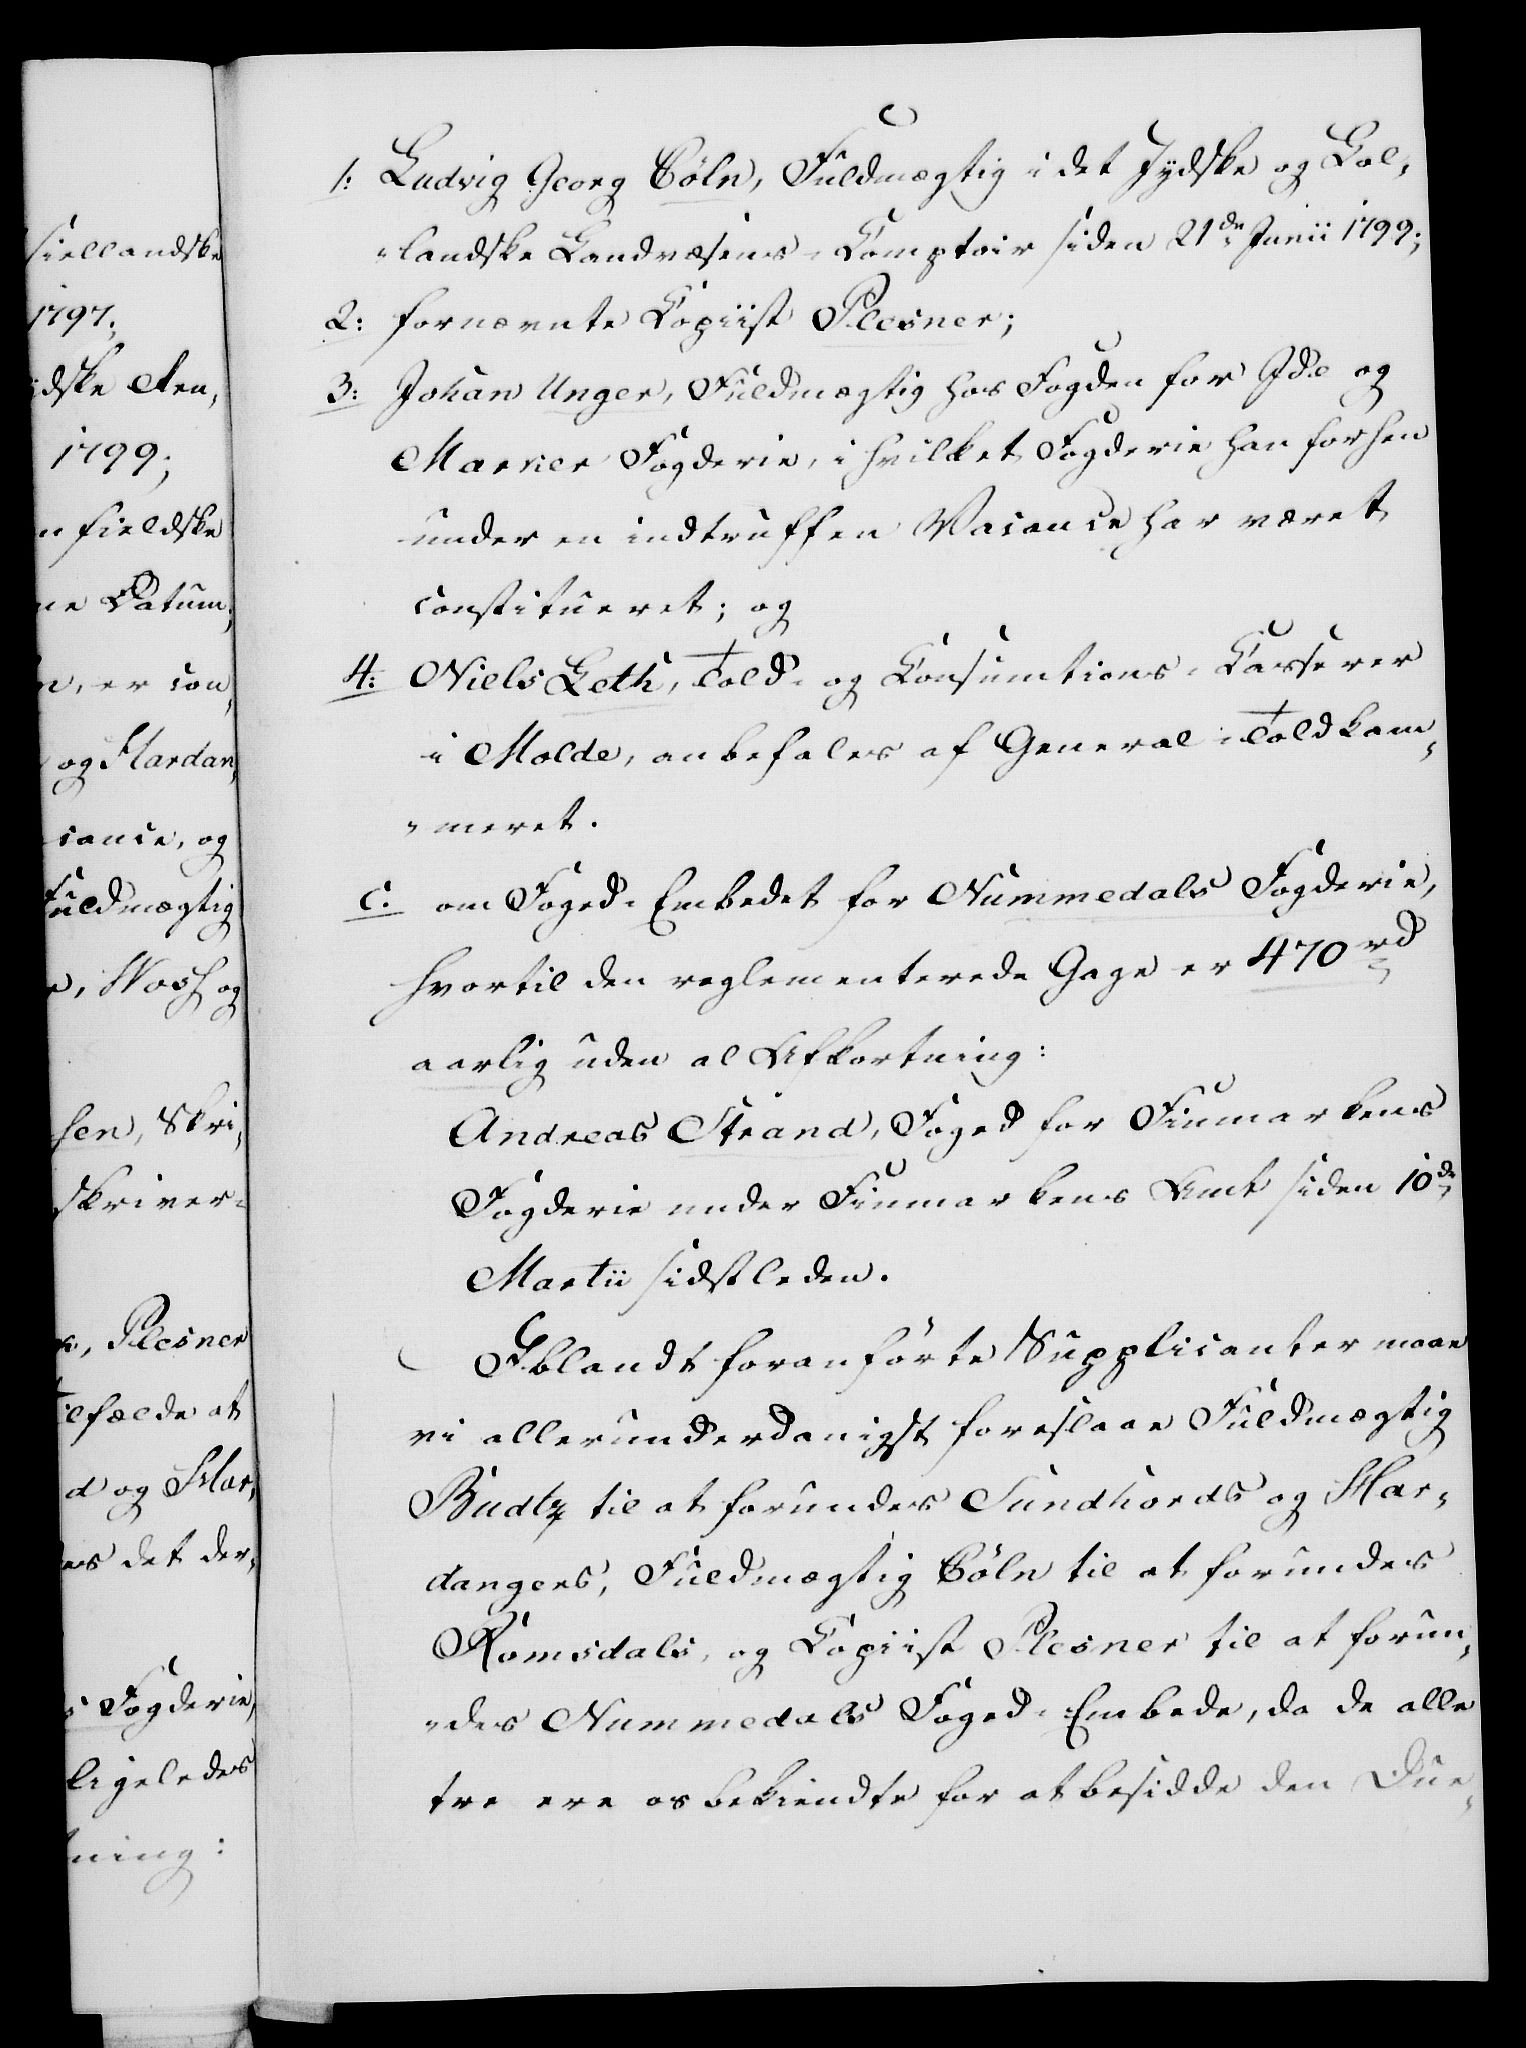 siellandske
1797;
idske Aren,
1799;
n fieldske
ne Datum;
n, er con,
og Hardan,
cance, og
Fuldmægtig
e, Woss og
sen, Skri,
skriver-
s, Plesner
ilfælde at
d og Har,
es det der,
s Fogderie,
ligeledes
ning:
1: Ludvig Georg Cöln, Fuldmægtig i det Jydske og Lol,
„landske Landvæsens-Comptoir siden 21de Junii 1799;
2: fornævnte Copiist Plesner;
3: Johan Unger, Fuldmægtig hos Fogden for Ide og
Marker Fogderie, i hvilket Fogderie han forhen
under en indtruffen Vacance har været
constitueret; og
4: Niels Leth, Told- og Consumtions-Casserer
i Molde, anbefales af General-Toldkam„
„meret.
c. om Foged-Embedet for Nummedals Fogderie,
hvortil den reglementerede Gage er 470 rd
aarlig uden al Afkortning:
Andreas Strand, Foged for Finmarkens
Fogderie under Finmarkens Amt siden 10de
Martii sidstleden.
Iblandt foranførte Supplicanter maae
vi allerunderdanigst foreslaae Fuldmægtig
Budtz til at forundes Sundhords og Har„
dangers, Fuldmægtig Cöln til at forundes
Romsdals, og Copiist Plesner til at forun„
„des Nummedals Foged-Embede, da de alle
tre ere os bekiendte for at besidde den Due„